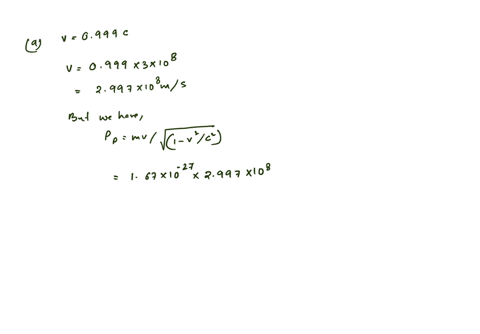 (a) v = 0.999 c
v = 0.999 × 3 × 10^8
= 2.997 × 10^8 m/s
But we have,
P_p = mv / √(1 - v²/c²)
= 1.67 × 10^-27 × 2.997 × 10^8